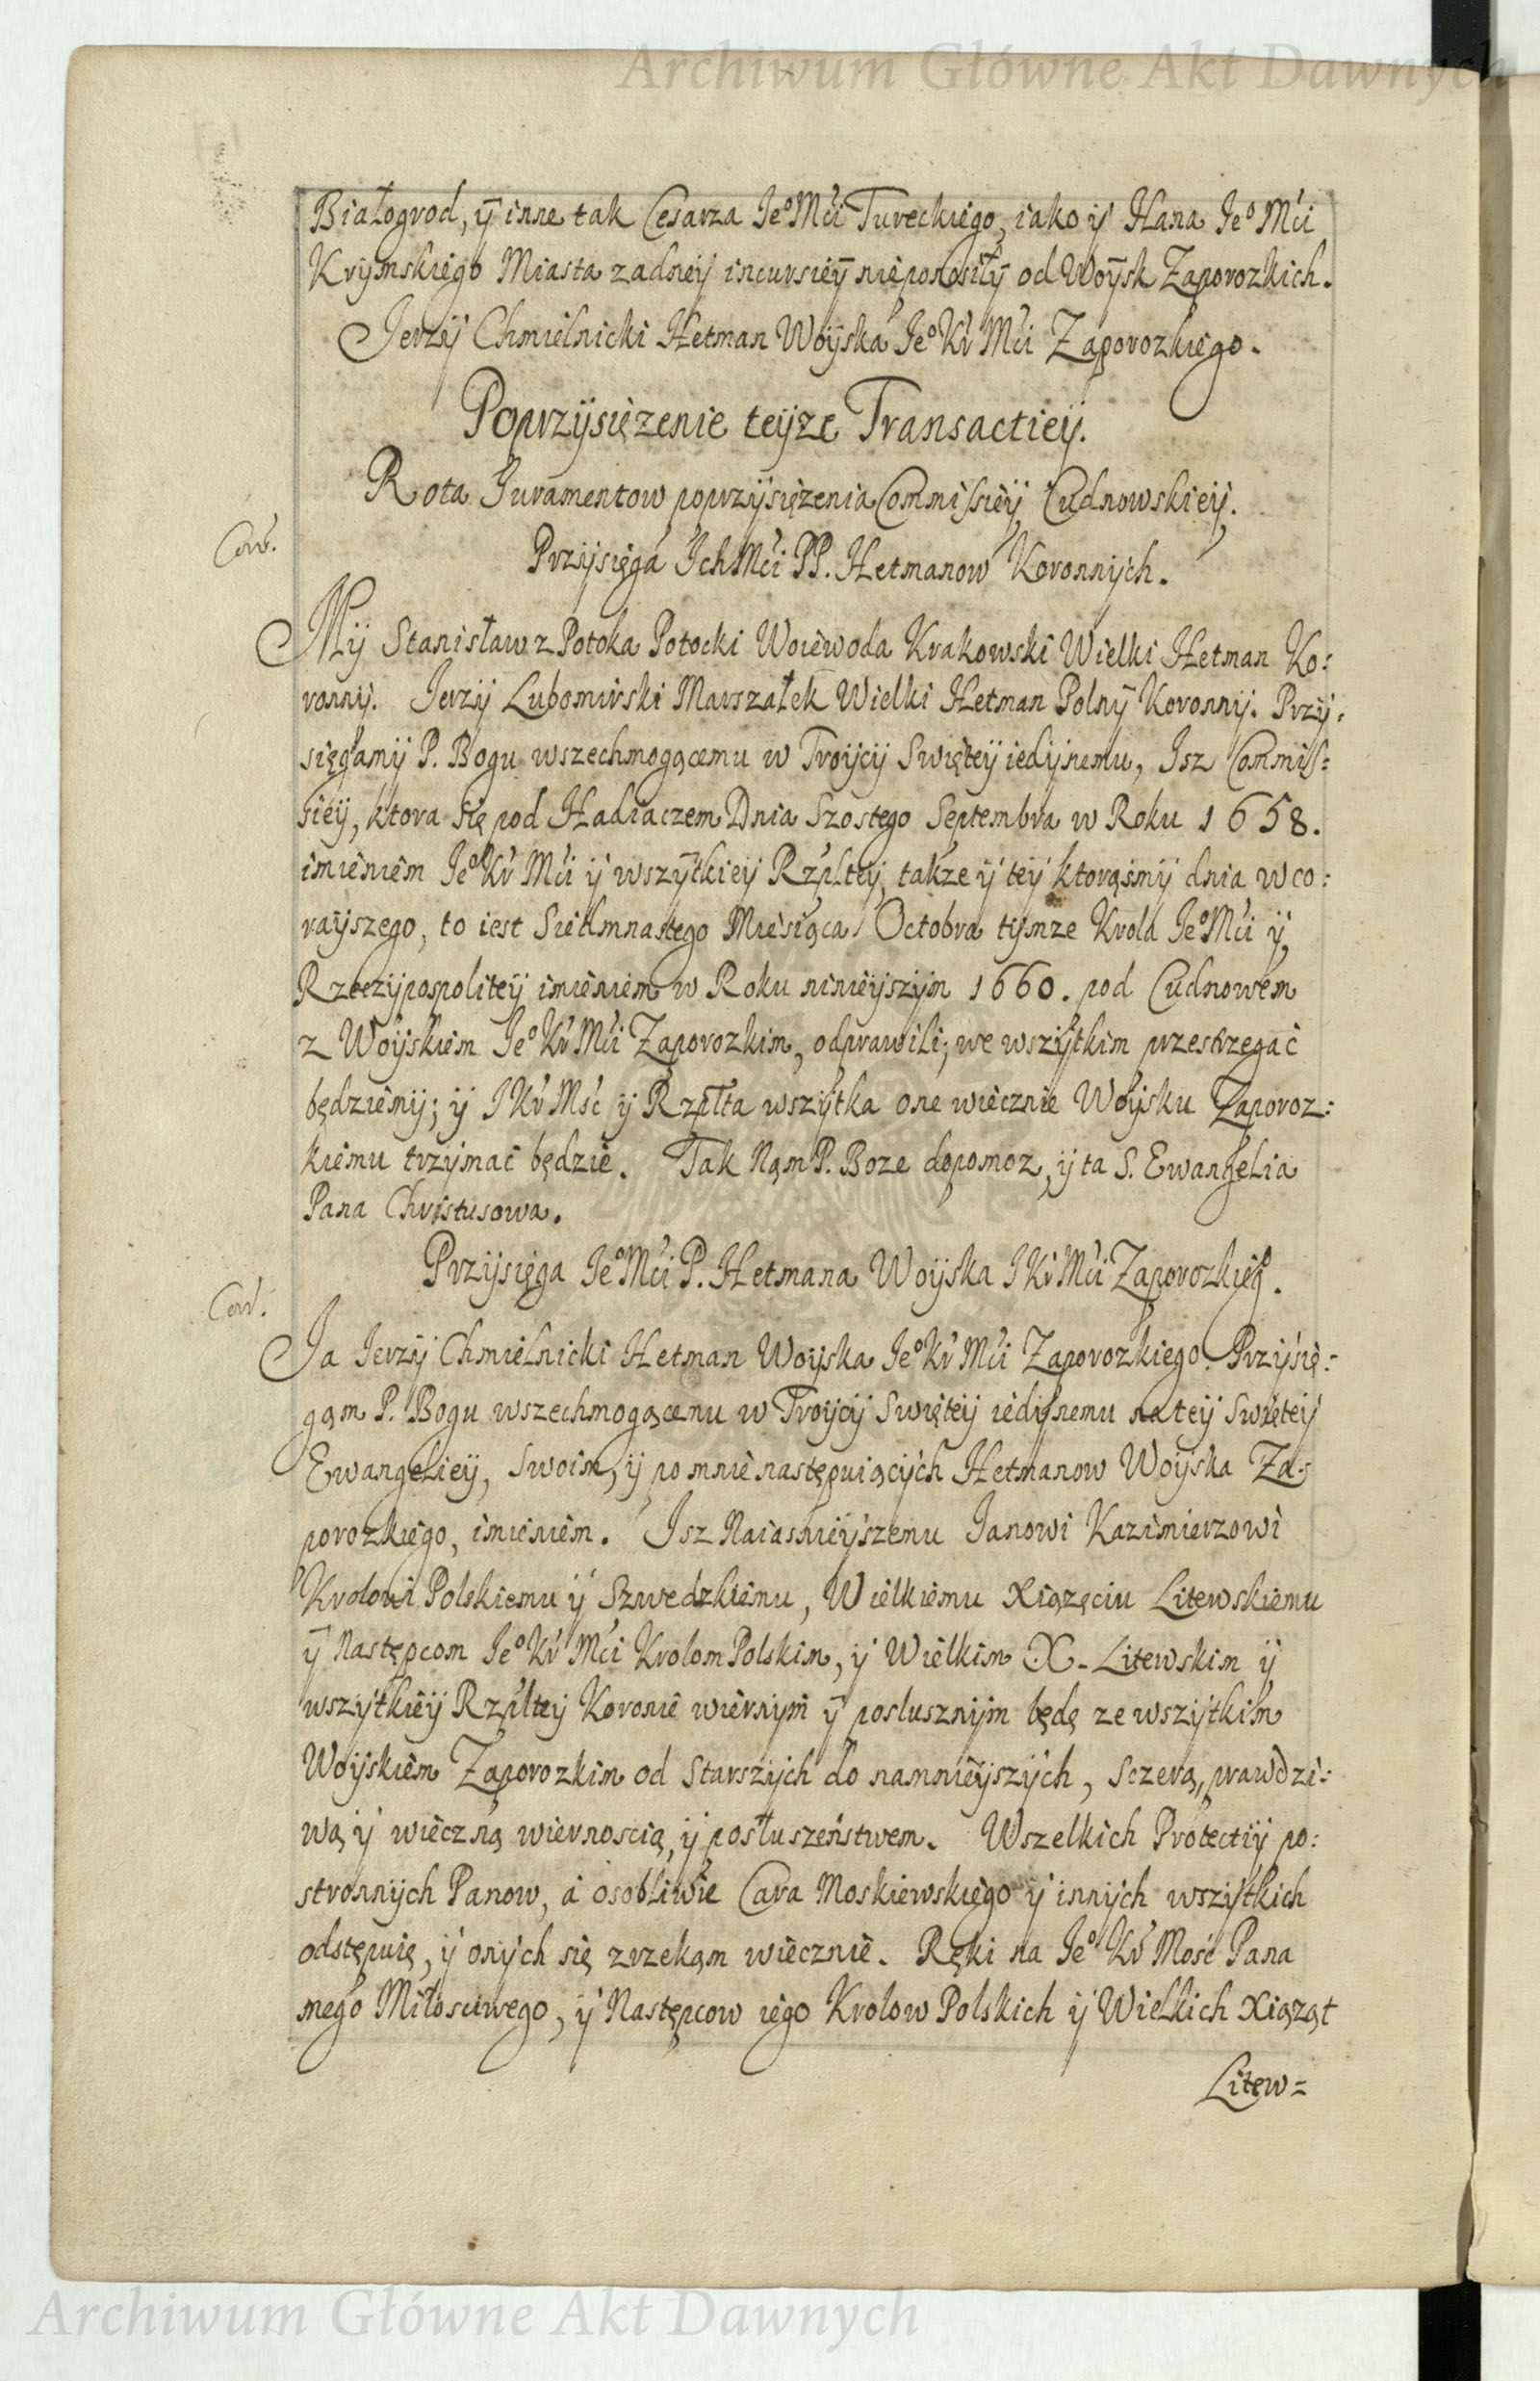 Archiwum Główne Akt Dawnych
Białogrod, ÿ inne tak Cesarza Jeº Mći Tureckiego, iako ÿ Hana Jeº Mći
Krÿmskiego Miasta zadneÿ incursieÿ nieponosiłÿ od Woÿsk Zaporozkich.
Jerzÿ Chmielnicki Hetman Woÿska Jeº Kr Mći Zaporozkiego.
Poprzÿsięzenie teÿze Transactieÿ.
Rota Juramentow poprzÿsięzenia Commissieÿ Cudnowskieÿ.
Przÿsięga Jch Mći PP. Hetmanow Koronnÿch.
Mÿ Stanisław z Potoka Potocki Woiewoda Krakowski Wielki Hetman Ko:
ronnÿ. Jerzÿ Lubomirski Marszałek Wielki Hetman Polnÿ Koronnÿ. Przÿ:
sięgamÿ P. Bogu wszechmogącemu w Troÿcÿ Swięteÿ iedÿnemu, Isz Commis:
sieÿ, ktora się pod Hadiaczem Dnia Szostego Septembra w Roku 1658.
imieniem Jeº Kr Mći ÿ wszÿtkieÿ Rzpltеÿ, takze ÿ teÿ ktorąsmÿ dnia wco:
raÿszego, to iest Siedmnastego Miesiąca Octobra tÿmze Krola Jeº Mći ÿ
Rzeczÿpospoliteÿ imieniem w Roku ninieÿszÿm 1660. pod Cudnowem
z Woÿskiem Jeº Kr Mći Zaporozkim, odprawili; we wszÿtkim przestrzegać
będziemÿ; ÿ J Kr Mść ÿ Rzplta wszÿtka one wiecznie Woÿsku Zaporoz:
kiemu trzÿmać będzie. Tak Nąm P. Boze dopomoz, ÿ ta S. Ewangelia
Pana Christusowa.
Przÿsięga Jeº Mći P. Hetmana Woÿska J Kr Mći Zaporozkiegº.
Ja Jerzÿ Chmielnicki Hetman Woÿska Jeº Kr Mći Zaporozkiego. Przÿsię:
gąm P. Bogu wszechmogącemu w Troÿcÿ Swięteÿ iedÿnemu na teÿ Swięteÿ
Ewangelieÿ, Swoim, ÿ po mnie następuiącÿch Hetmanow Woÿska Za:
porozkiego, imieniem. Isz Naiasnieÿszemu Janowi Kazimierzowi
Krolowi Polskiemu ÿ Szwedzkiemu, Wielkiemu Xiązęciu Litewskiemu
ÿ Następcom Jeº Kr Mći Krolom Polskim, ÿ Wielkim X. Litewskim ÿ
wszÿtkieÿ Rzplteÿ Koronie wiernÿm ÿ poslusznÿm będę ze wszÿtkim
Woÿskiem Zaporozkim od Starszÿch do namnieÿszÿch, sczerą, prawdzi:
wą ÿ wieczną wiernoscią, ÿ posłuszeństwem. Wszelkich Protectiÿ po:
stronnÿch Panow, á osobliwie Cara Moskiewskiego ÿ innÿch wszÿtkich
odstępuię, ÿ onÿch się zrzekąm wiecznie. Ręki na Jeº Kr Mość Pana
mego Miłosciwego, ÿ Następcow iego Krolow Polskich ÿ Wielkich Xiąząt
Litew=
Archiwum Główne Akt Dawnych